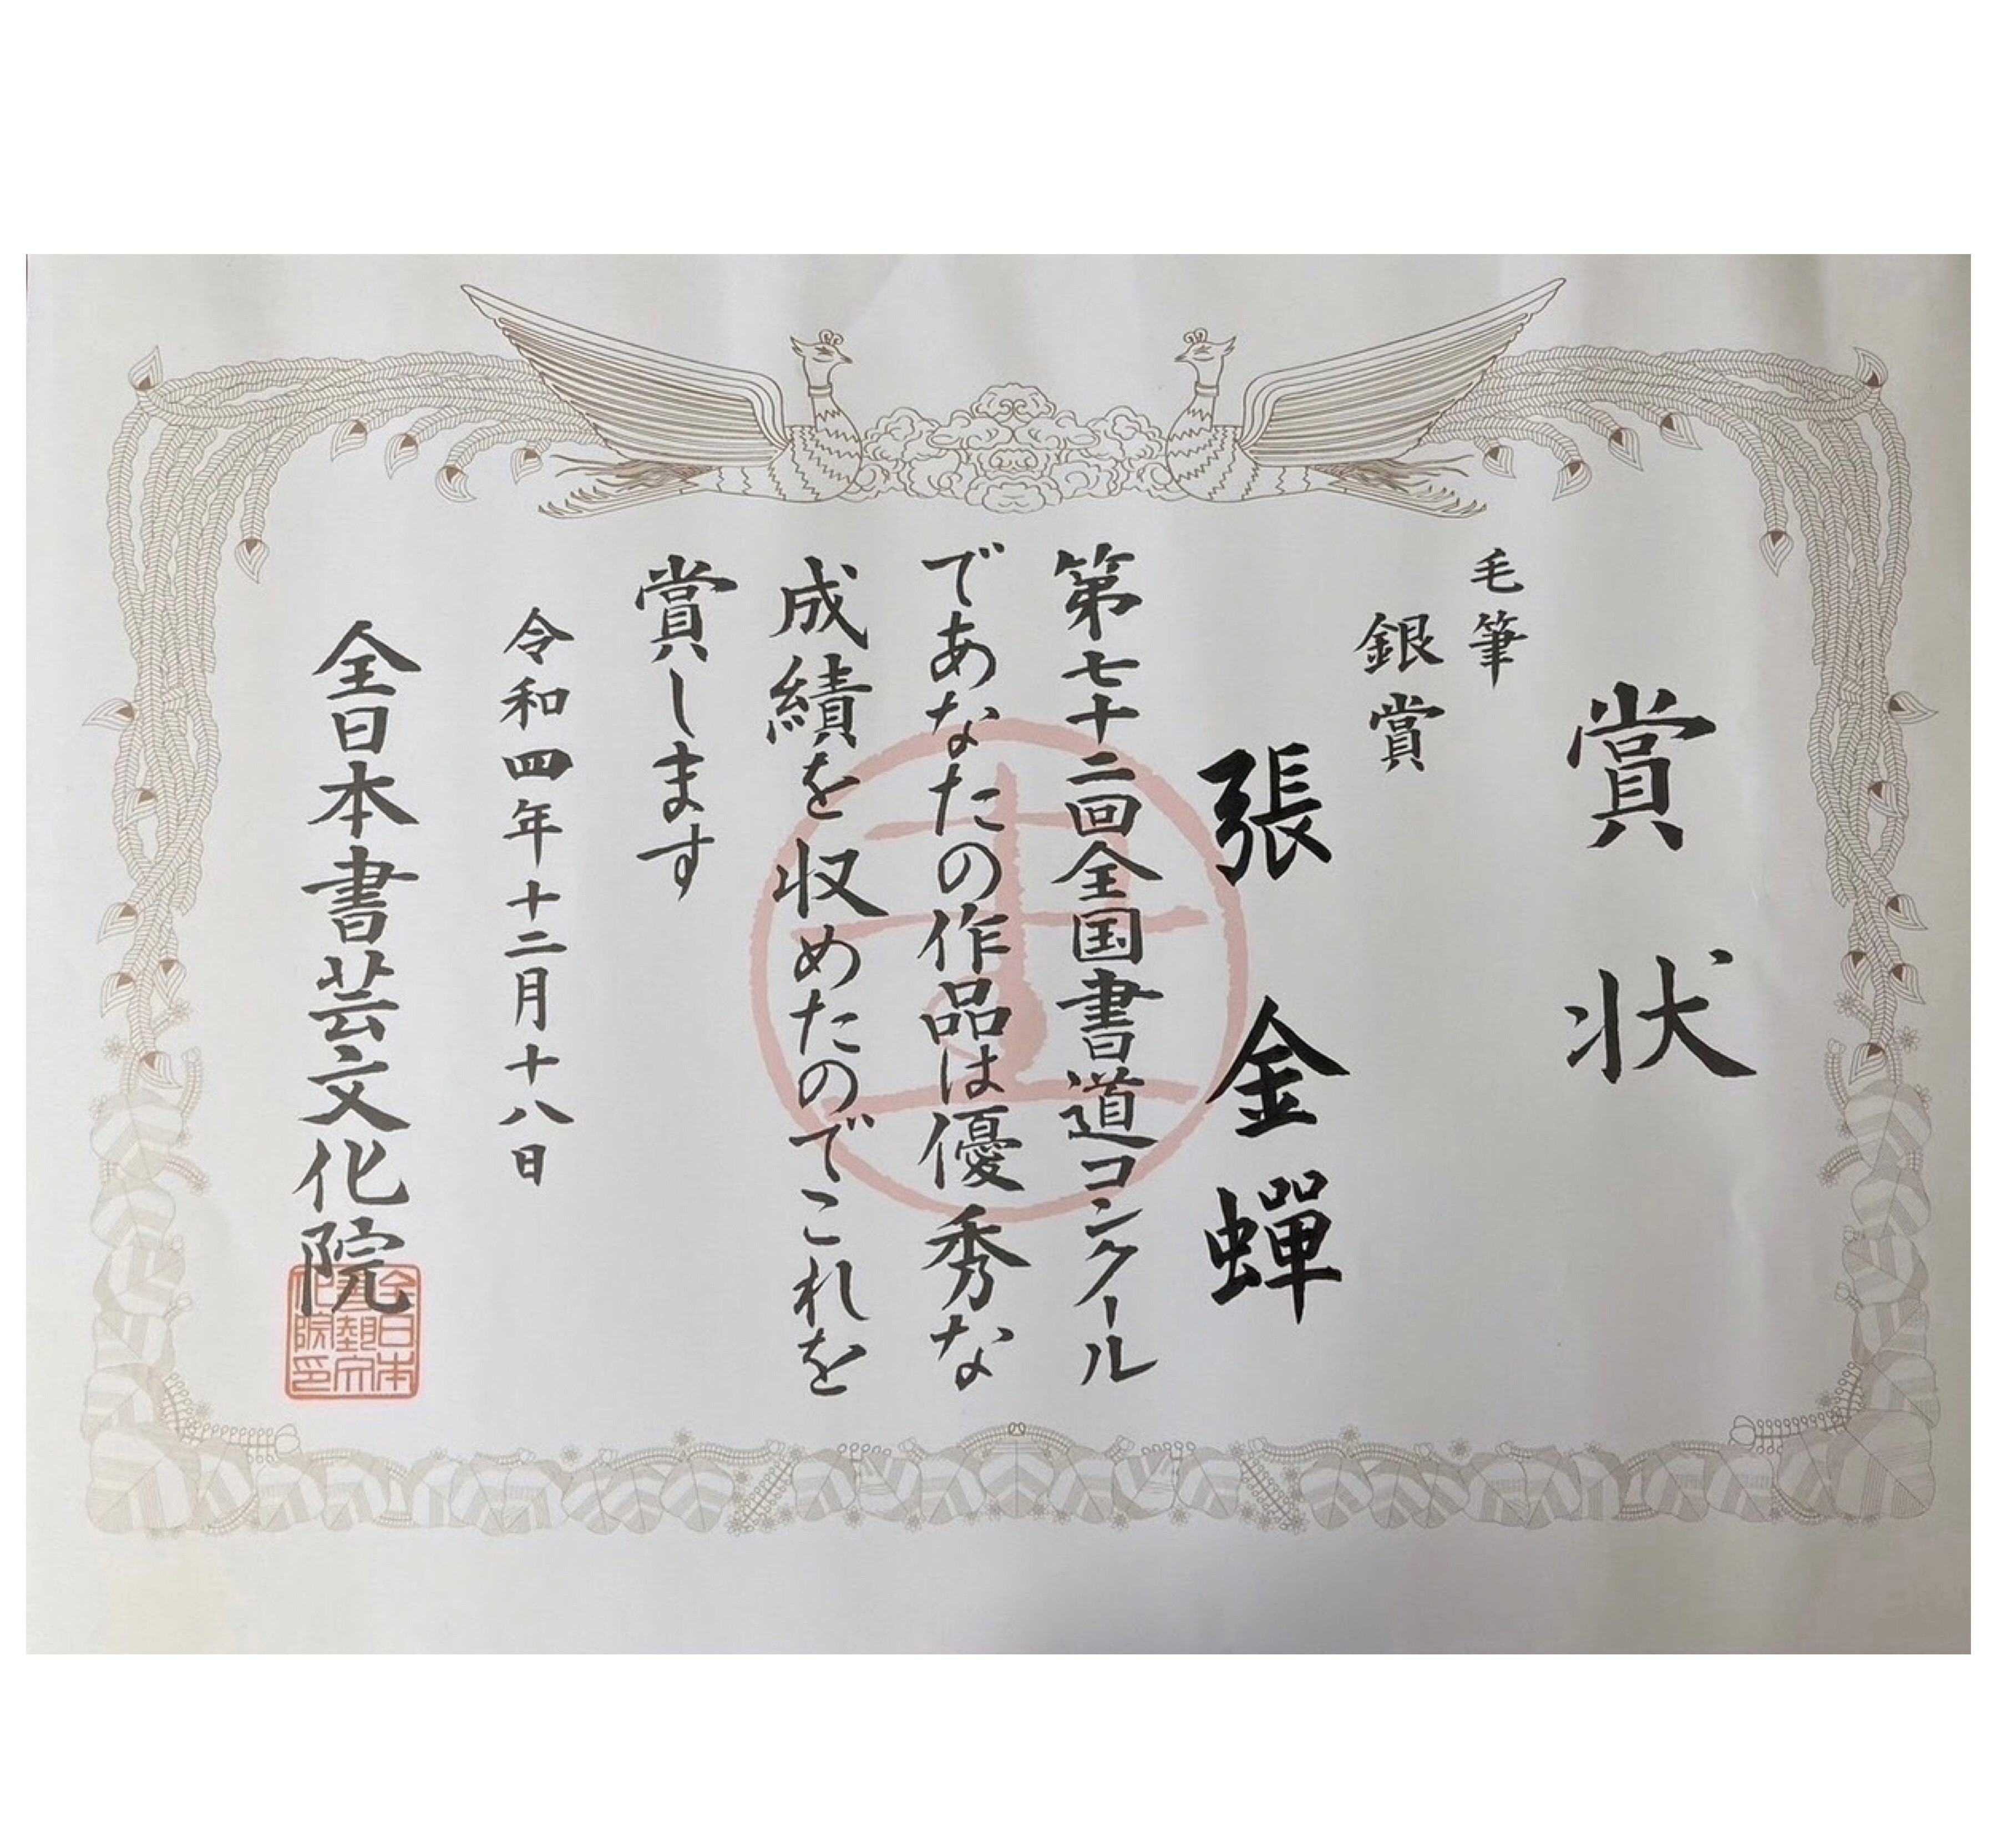 賞状
毛筆
銀賞
張金蟬
第七十二回全国書道コンクール
であなたの作品は優秀な
成績を収めたのでこれを
賞します
令和四年十二月十八日
全日本書芸文化院
全日本
書藝文
化院印